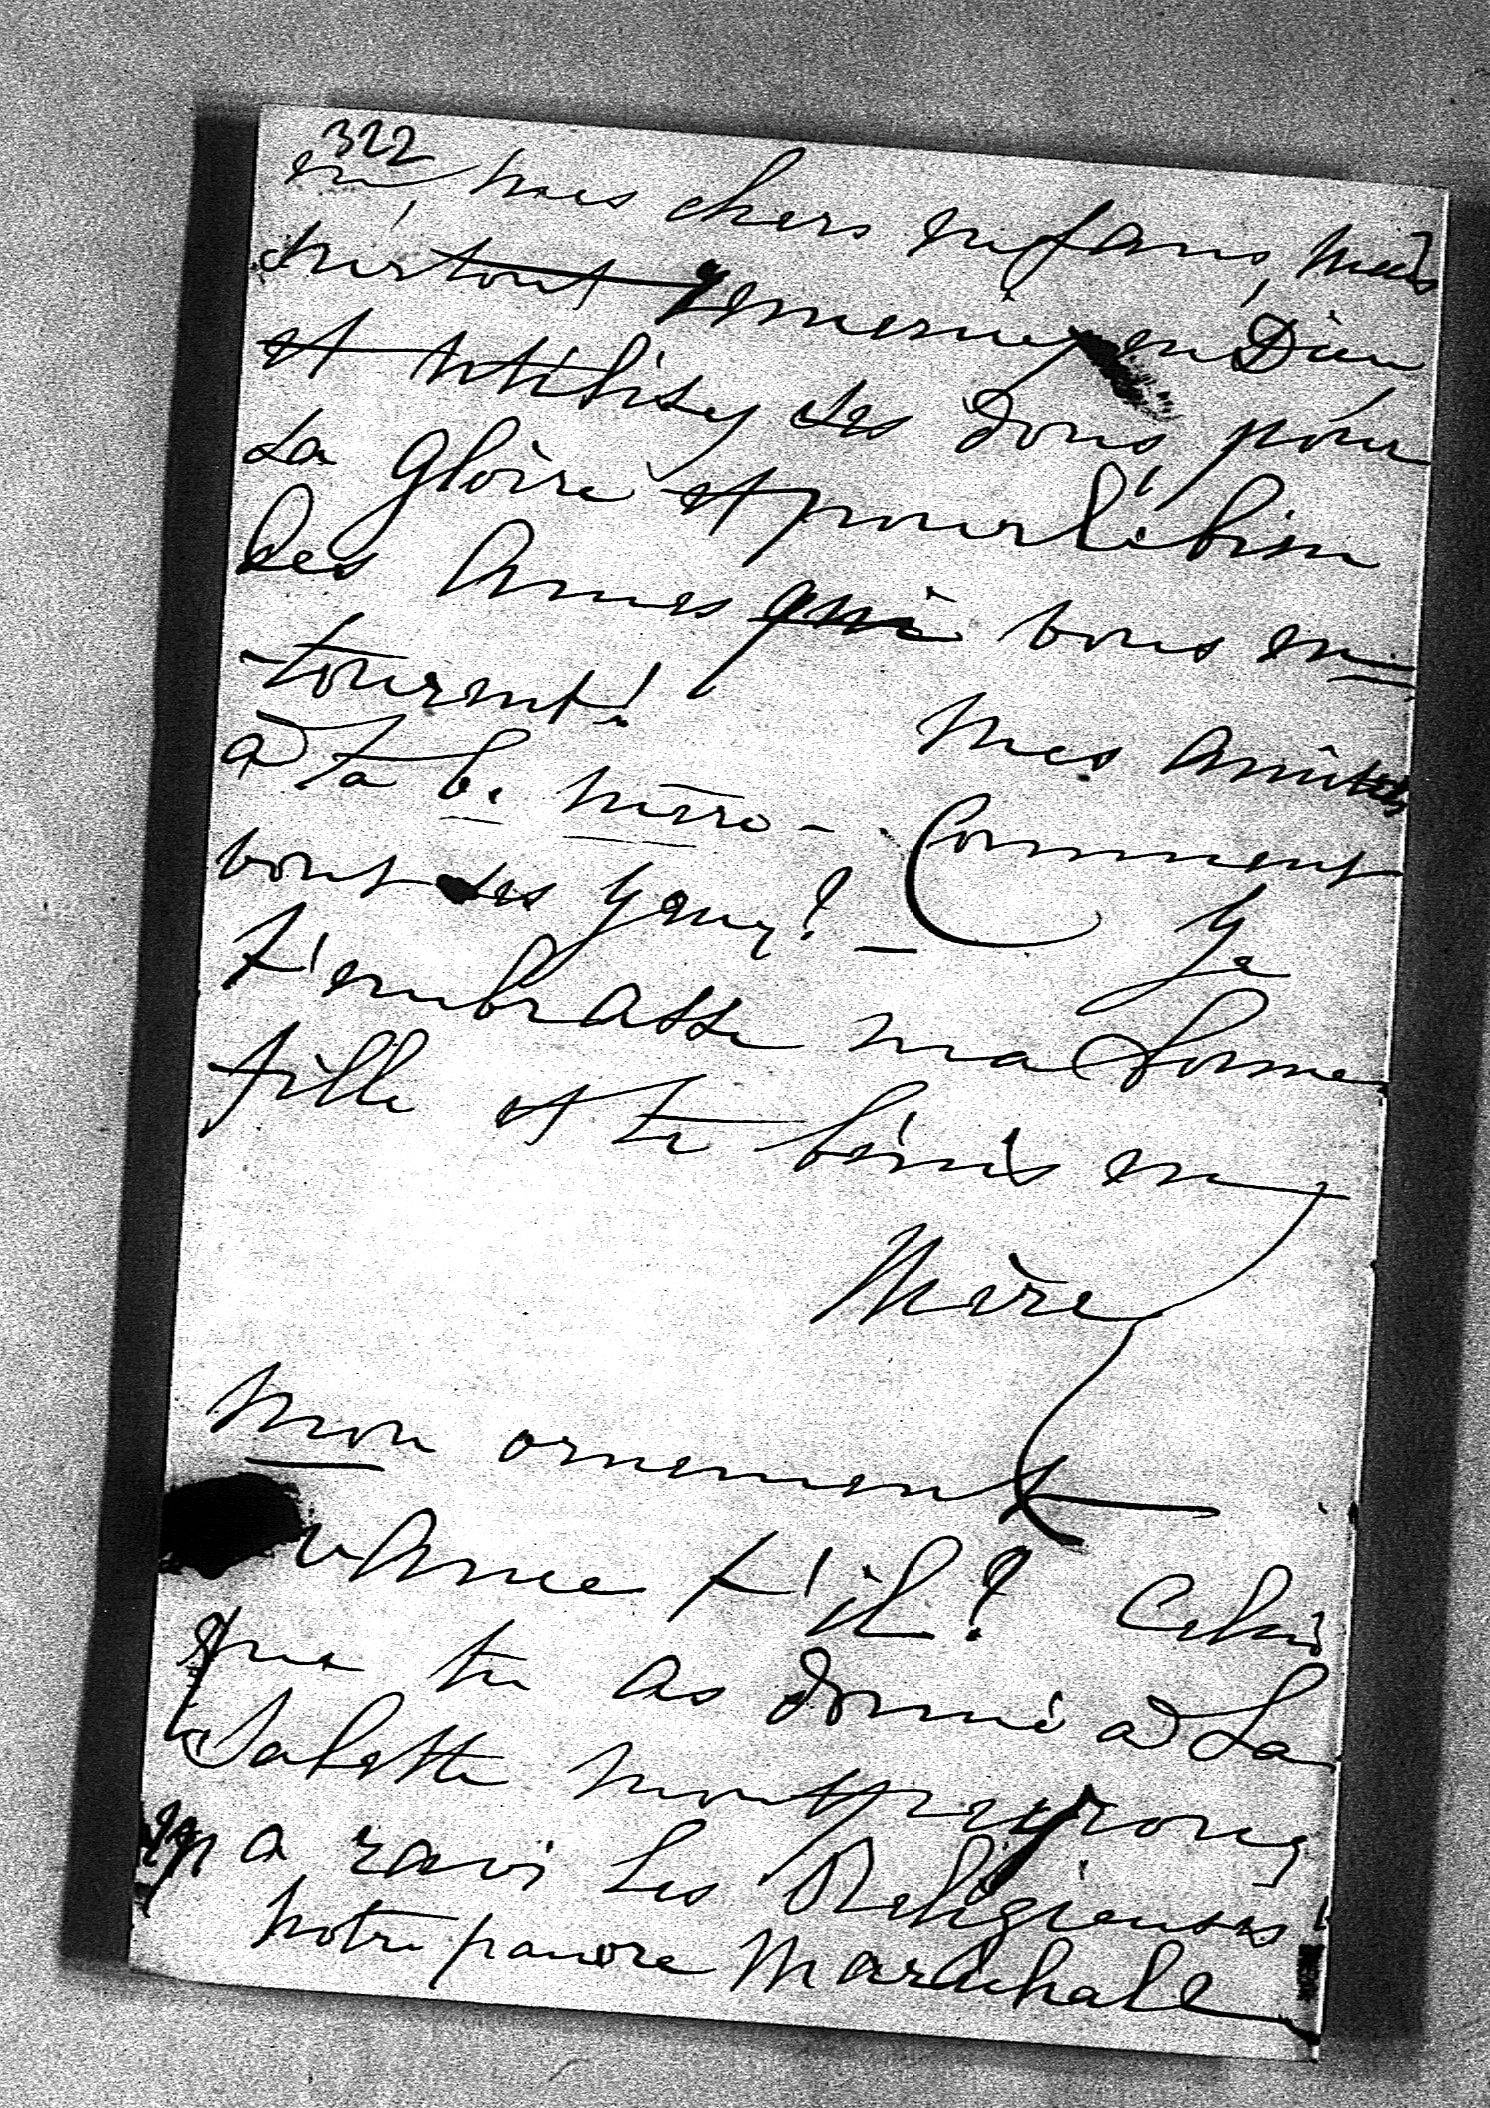 322
en, mes chers enfans, mais
surtout remerciez en Dieu
et utilisez ses dons pour
sa gloire et pour le bien
des âmes qui vous en-
-tourent! Mes amitiés
à ta b. mère - Comment
vont ses yeux? - Je
t'embrasse ma bonne
fille et te bénis en
Mère
Mon ornement
avance t'il? Celui
que tu as donné à La
Salette
a ravi les Religieuses!
Notre pauvre Maréchale